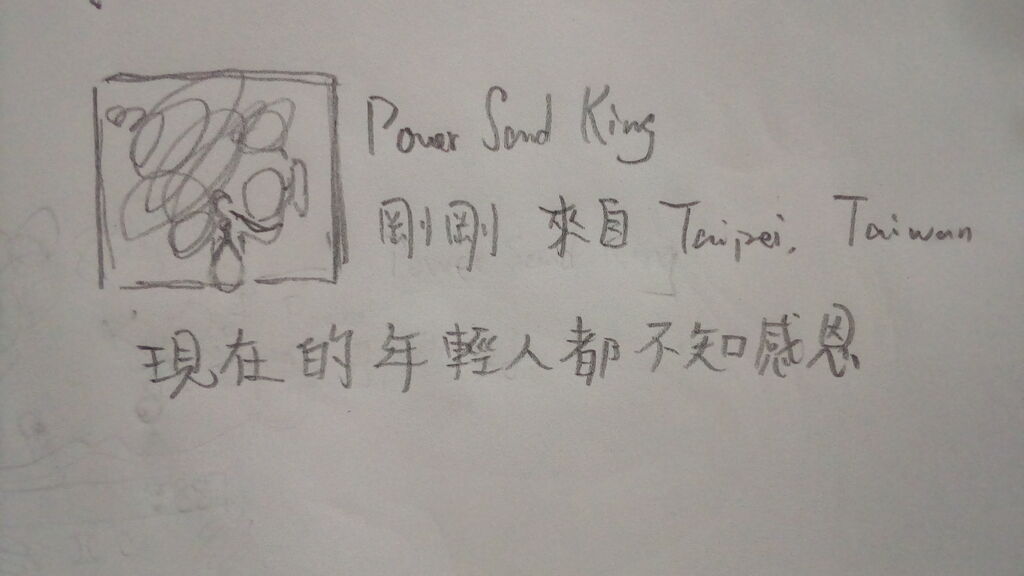 Power Sand King
剛剛 來自 Taipei, Taiwan
現在的年輕人都不知感恩